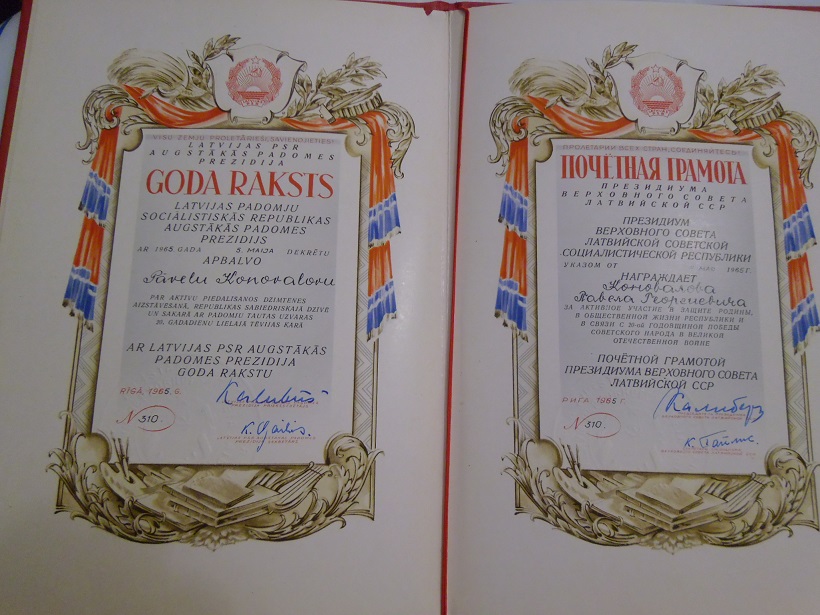 VISU ZEMJU PROLETĀRIEŠI, SAVIENOJIETIES!
LATVIJAS PSR
AUGSTĀKĀS PADOMES
PREZIDIJA
GODA RAKSTS
LATVIJAS PADOMJU
SOCIALISTISKĀS REPUBLIKAS
AUGSTĀKĀS PADOMES
PREZIDIJS
AR 1965. GADA 5. MAIJA DEKRĒTU
APBALVO
Pāvelu Konovalovu
PAR AKTĪVU PIEDALĪŠANOS DZIMTENES
AIZSTĀVĒŠANĀ, REPUBLIKAS SABIEDRISKAJĀ DZĪVĒ
UN SAKARĀ AR PADOMJU TAUTAS UZVARAS
20. GADADIENU LIELAJĀ TĒVIJAS KARĀ
AR LATVIJAS PSR AUGSTĀKĀS
PADOMES PREZIDIJA
GODA RAKSTU
RĪGĀ, 1965. G.
N 310.
K. Gailis
ПРОЛЕТАРИИ ВСЕХ СТРАН, СОЕДИНЯЙТЕСЬ!
ПОЧЕТНАЯ ГРАМОТА
ПРЕЗИДИУМА
ВЕРХОВНОГО СОВЕТА
ЛАТВИЙСКОЙ ССР
ПРЕЗИДИУМ
ВЕРХОВНОГО СОВЕТА
ЛАТВИЙСКОЙ СОВЕТСКОЙ
СОЦИАЛИСТИЧЕСКОЙ РЕСПУБЛИКИ
УКАЗОМ ОТ МАЯ 1965 Г.
НАГРАЖДАЕТ
Коновалова
Павла Георгиевича
ЗА АКТИВНОЕ УЧАСТИЕ В ЗАЩИТЕ РОДИНЫ,
В ОБЩЕСТВЕННОЙ ЖИЗНИ РЕСПУБЛИКИ И
В СВЯЗИ С 20-ой ГОДОВЩИНОЙ ПОБЕДЫ
СОВЕТСКОГО НАРОДА В ВЕЛИКОЙ
ОТЕЧЕСТВЕННОЙ ВОЙНЕ
ПОЧЁТНОЙ ГРАМОТОЙ
ПРЕЗИДИУМА ВЕРХОВНОГО СОВЕТА
ЛАТВИЙСКОЙ ССР
РИГА, 1965 Г.
Калнберз
N 310.
К. Гайлис